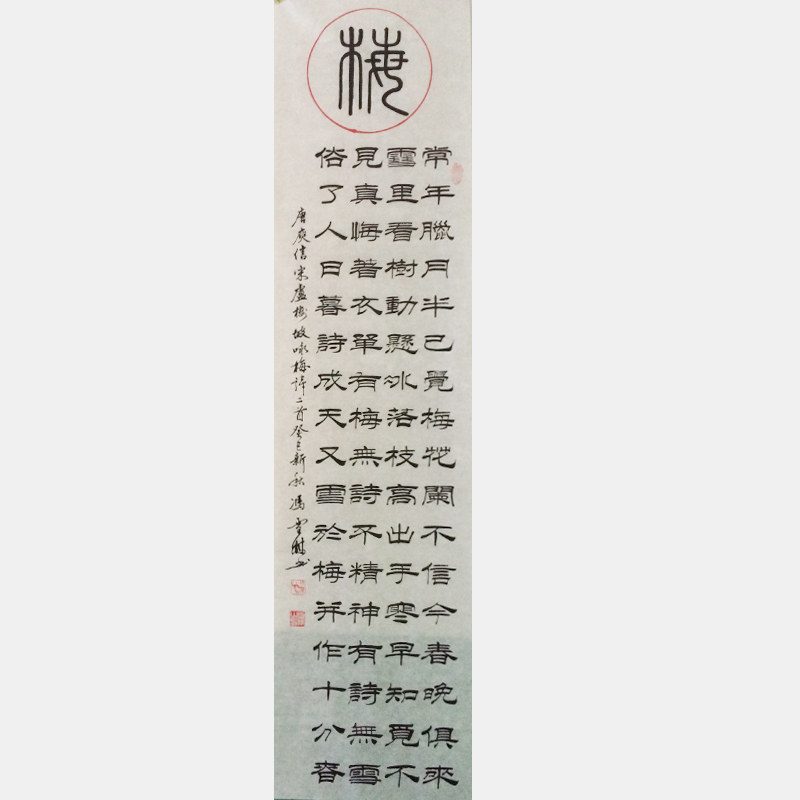 梅
常年臘月半已覺梅花闌不信今春晚俱來
雪里看樹動懸冰落枝高出手寒早知覓不
見真悔著衣單有梅無詩不精神有詩無雪
俗了人日暮詩成天又雪於梅并作十分春
唐庾信宋盧梅坡咏梅詩二首癸巳新秋馮雪书